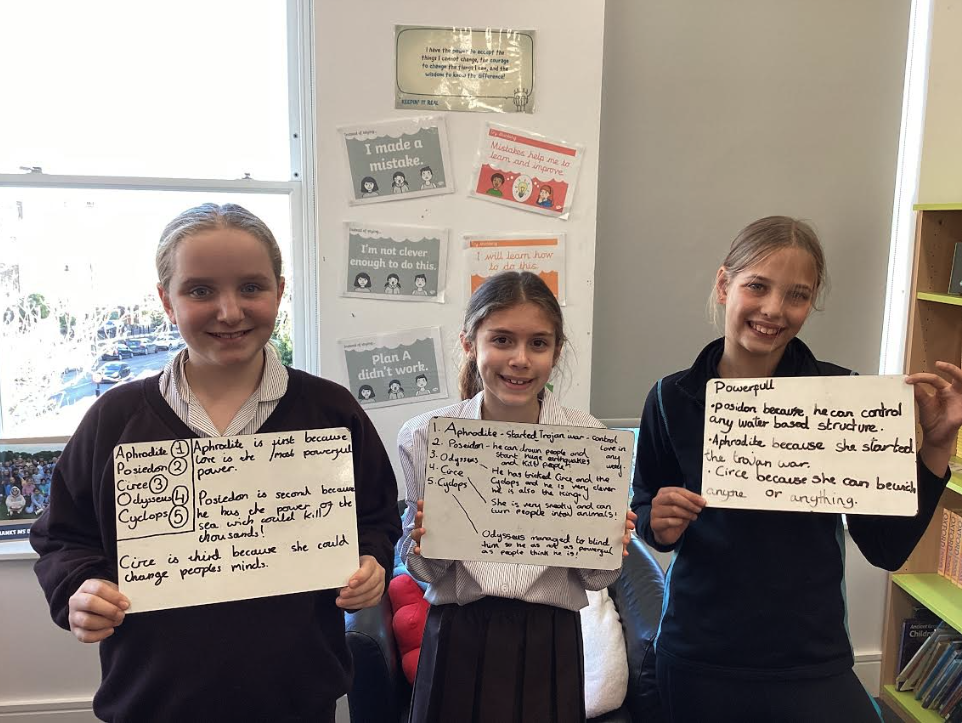 I have the power to accept the
things I cannot change, the courage
to change the things I can, and the
wisdom to know the difference!
KEEPIN' IT REAL
Instead of saying...
I made a
mistake.
Try thinking
Mistakes help me to
learn and improve.
Instead of saying...
I'm not clever
enough to do this.
Try thinking
I will learn how
to do this.
Instead of saying...
Plan A
didn't work.
Aphrodite 1
Posiedon 2
Circe 3
Odyseus 4
Cyclops 5
Aphrodite is first because
love is the most powerful
power.
Posiedon is second because
he has the power of the
sea wich could kill
thousands!
Circe is third because she could
change peoples minds.
1. Aphrodite - Started Trojan war - control
love in any way.
2. Poseidon - he can drown people and
start huge earthquakes
and kill people!
3. Odysseus
4. Circe
5. Cyclops
He has tricked Circe and the
Cyclops and he is very clever
he is also the king of
She is very sneaky and can
turn people into animals!
Odysseus managed to blind
him so he as not as powerful
as people think he is!
Powerfull
• posidon because he can control
any water based structure.
• Aphrodite because she started
the trojan war.
• Circe because she can bewich
anyone or anything.